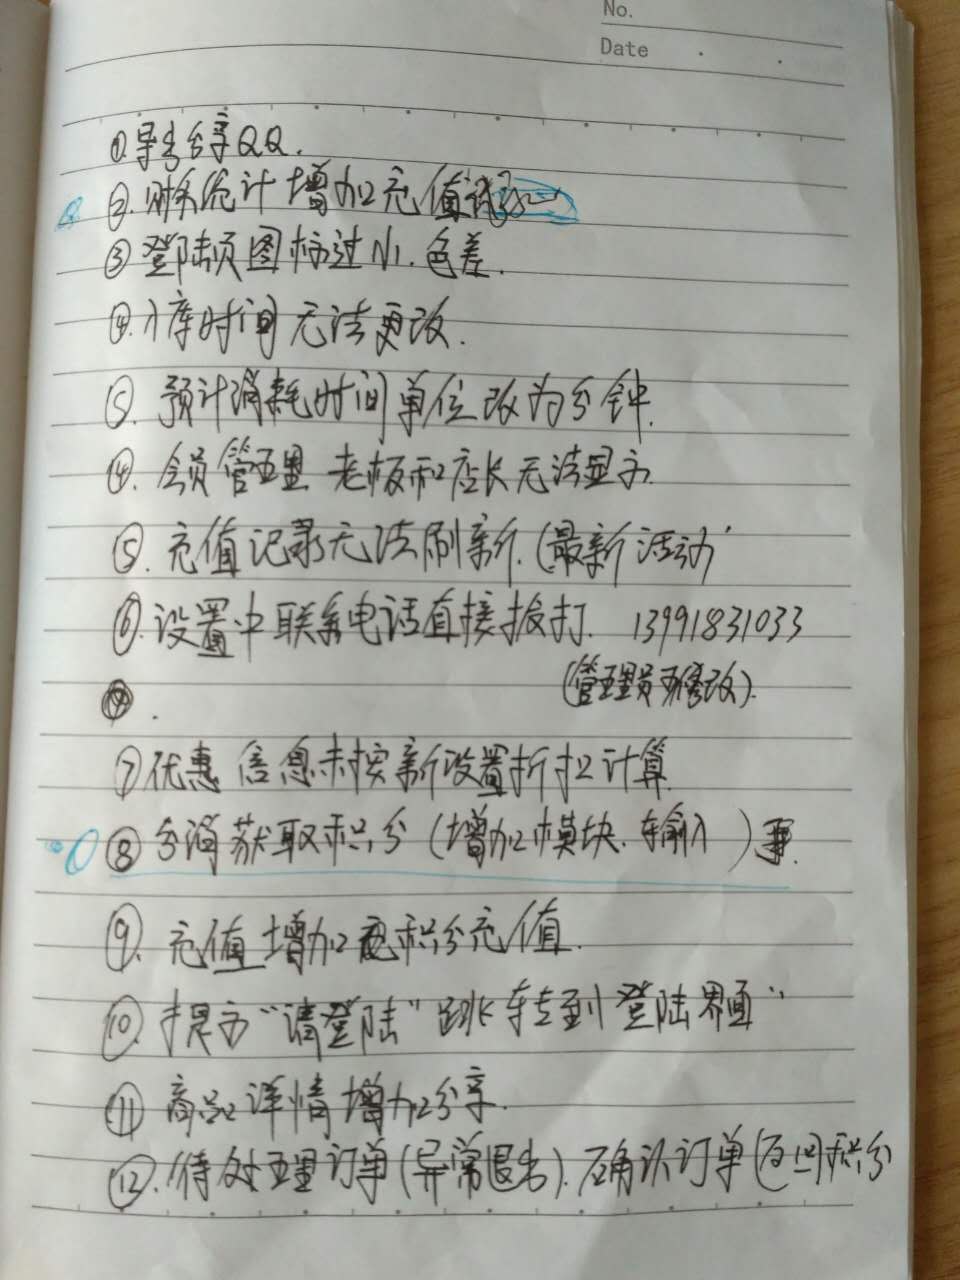 No.
Date
①.导出分享QQ.
②.财务统计增加充值
③登陆页图标过小.色差.
④.入库时间无法更改.
⑤.预计消耗时间单位改为分钟.
④.会员管理 老板和店长无法显示.
⑤.充值记录无法刷新.(最新活动)
⑥.设置中联系电话直接拨打. 13991831033
(管理员可修改).
⑦优惠信息未按新设置折扣计算.
⑧分消获取积分(增加模块.输入)
⑨.充值增加积分充值.
⑩.提示“请登陆”跳转到登陆界面”
⑪商品详情增加分享.
⑫.待处理订单(异常退出).确认订单(返回积分